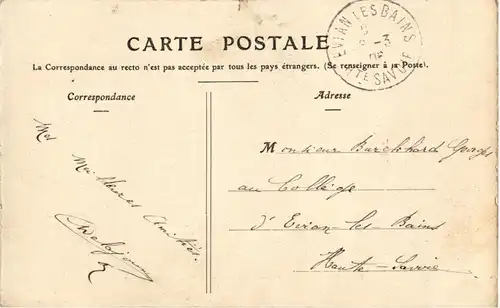 CARTE POSTALE
EVIAN LES BAINS
HTE SAVOIE
La Correspondance au recto n'est pas acceptée par tous les pays étrangers. (Se renseigner à la Poste).
Correspondance
Adresse
Mes
Meilleures Amitiés.
Monsieur Burckhard Georges
au Collège
d'Evian-les Bains
Haute-Savoie